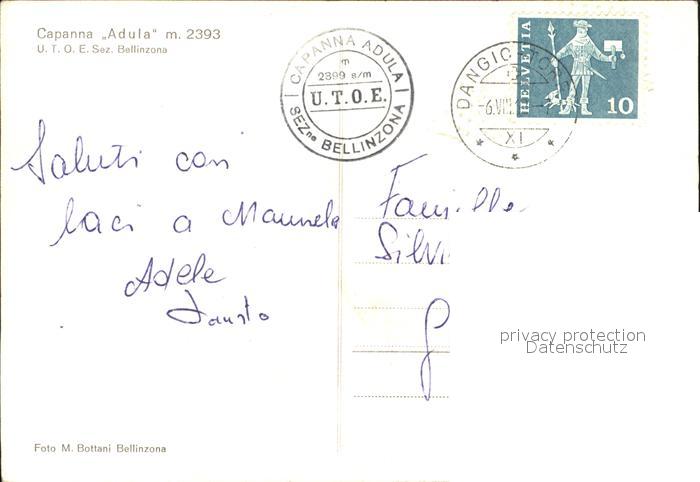 Capanna „Adula" m. 2393
U. T. O. E. Sez. Bellinzona
CAPANNA ADULA
m
2399 s/m
U.T.O.E.
SEZne BELLINZONA
DANGIO
-6.VIII
XI
HELVETIA
10
Saluti con
baci a Manuela
Adele
Fausto
Famille
Silvi
privacy protection
Datenschutz
Foto M. Bottani Bellinzona